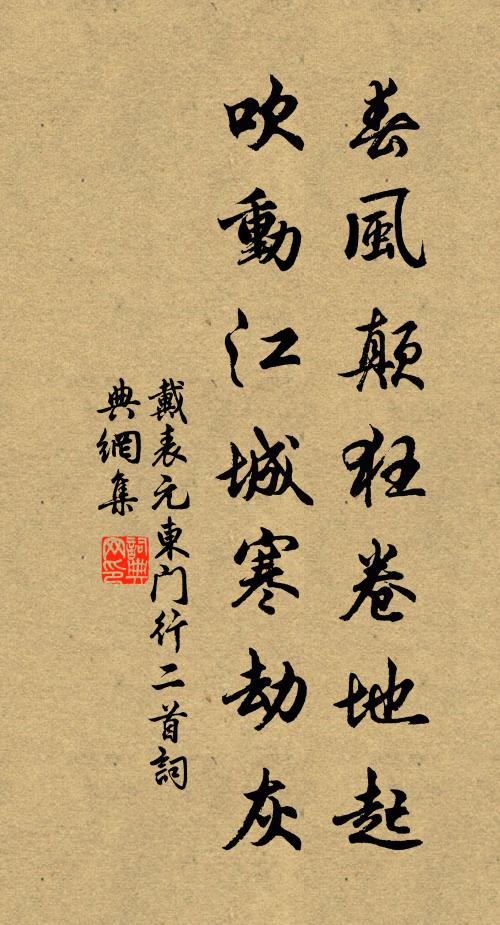 春風顛狂卷地起
吹動江城寒劫灰
戴表元東門行二首詞
典網集
詞典
网印